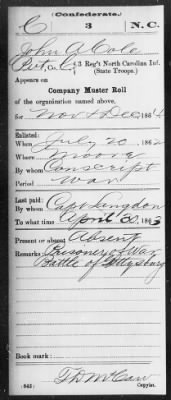 (Confederate.)
C 3 N. C.
John A. Cole
Pvt, Co. C, 3 Reg't North Carolina Inf.
(State Troops.)
Appears on
Company Muster Roll
of the organization named above,
for Nov & Dec, 1864
Enlisted:
When July 20, 1862
Where Moore
By whom Conscript
Period War
Last paid:
By whom Capt Langdon
To what time April 30, 1863
Present or absent Absent
Remarks: Prisoner of War
Battle of Gettysburg
Book mark:
(642)
Copyist.